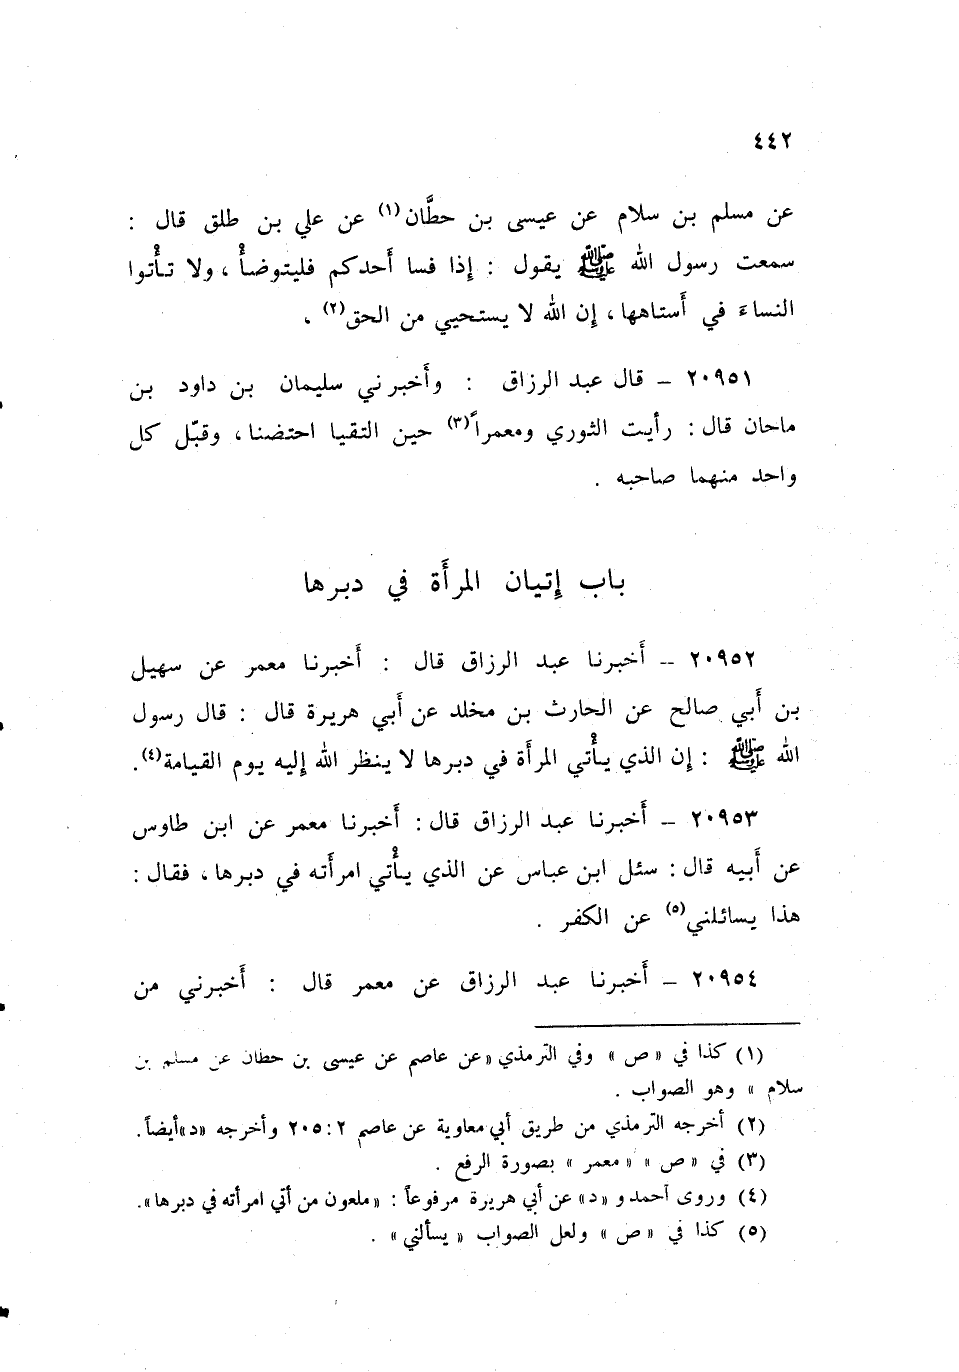 ٤٤٢
عن مسلم بن سلام عن عيسى بن حطَّان(١) عن علي بن طلق قال :
سمعت رسول الله ﷺ يقول : إذا فسا أَحدكم فليتوضأْ ، ولا تأْتوا
النساءَ في أَستاهها ، إن الله لا يستحيي من الحق(٢) .
٢٠٩٥١ – قال عبد الرزاق : وأَخبرني سليمان بن داود بن
ماحان قال : رأيت الثوري ومعمراً(٣) حين التقيا احتضنا ، وقبّل كل
واحد منهما صاحبه .
باب إتيان المرأَة في دبرها
٢٠٩٥٢ – أَخبرنا عبد الرزاق قال : أَخبرنا معمر عن سهيل
بن أَبي صالح عن الحارث بن مخلد عن أَبي هريرة قال : قال رسول
الله ﷺ : إن الذي يأْتي المرأَة في دبرها لا ينظر الله إليه يوم القيامة(٤) .
٢٠٩٥٣ – أَخبرنا عبد الرزاق قال : أَخبرنا معمر عن ابن طاوس
عن أَبيه قال : سئل ابن عباس عن الذي يأْتي امرأَته في دبرها ، فقال :
هذا يسائلني(٥) عن الكفر .
٢٠٩٥٤ – أَخبرنا عبد الرزاق عن معمر قال : أَخبرني من
(١) كذا في « ص » وفي الترمذي «عن عاصم عن عيسى بن حطان عن مسلم بن
سلام » وهو الصواب .
(٢) أخرجه الترمذي من طريق أبي معاوية عن عاصم ٢ : ٢٠٥ وأخرجه «د» أيضاً .
(٣) في « ص » « معمر » بصورة الرفع .
(٤) وروى أحمد و «د» عن أبي هريرة مرفوعاً : «ملعون من أتى امرأته في دبرها» .
(٥) كذا في « ص » ولعل الصواب « يسألني » .